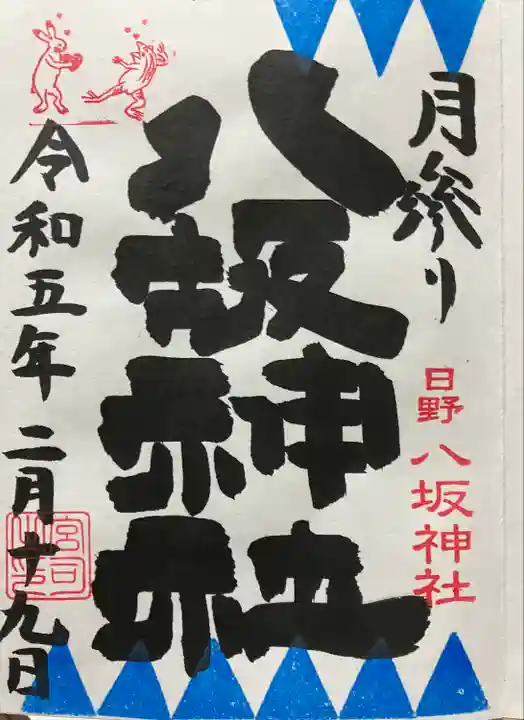 月参り
日野 八坂神社
八坂神社
令和五年二月十九日